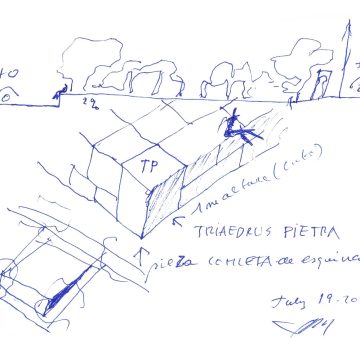 2%
TP
1m altura (cubo)
TRIAEDRUS PIETRA
pieza COMLETA de esquina
July 19.20